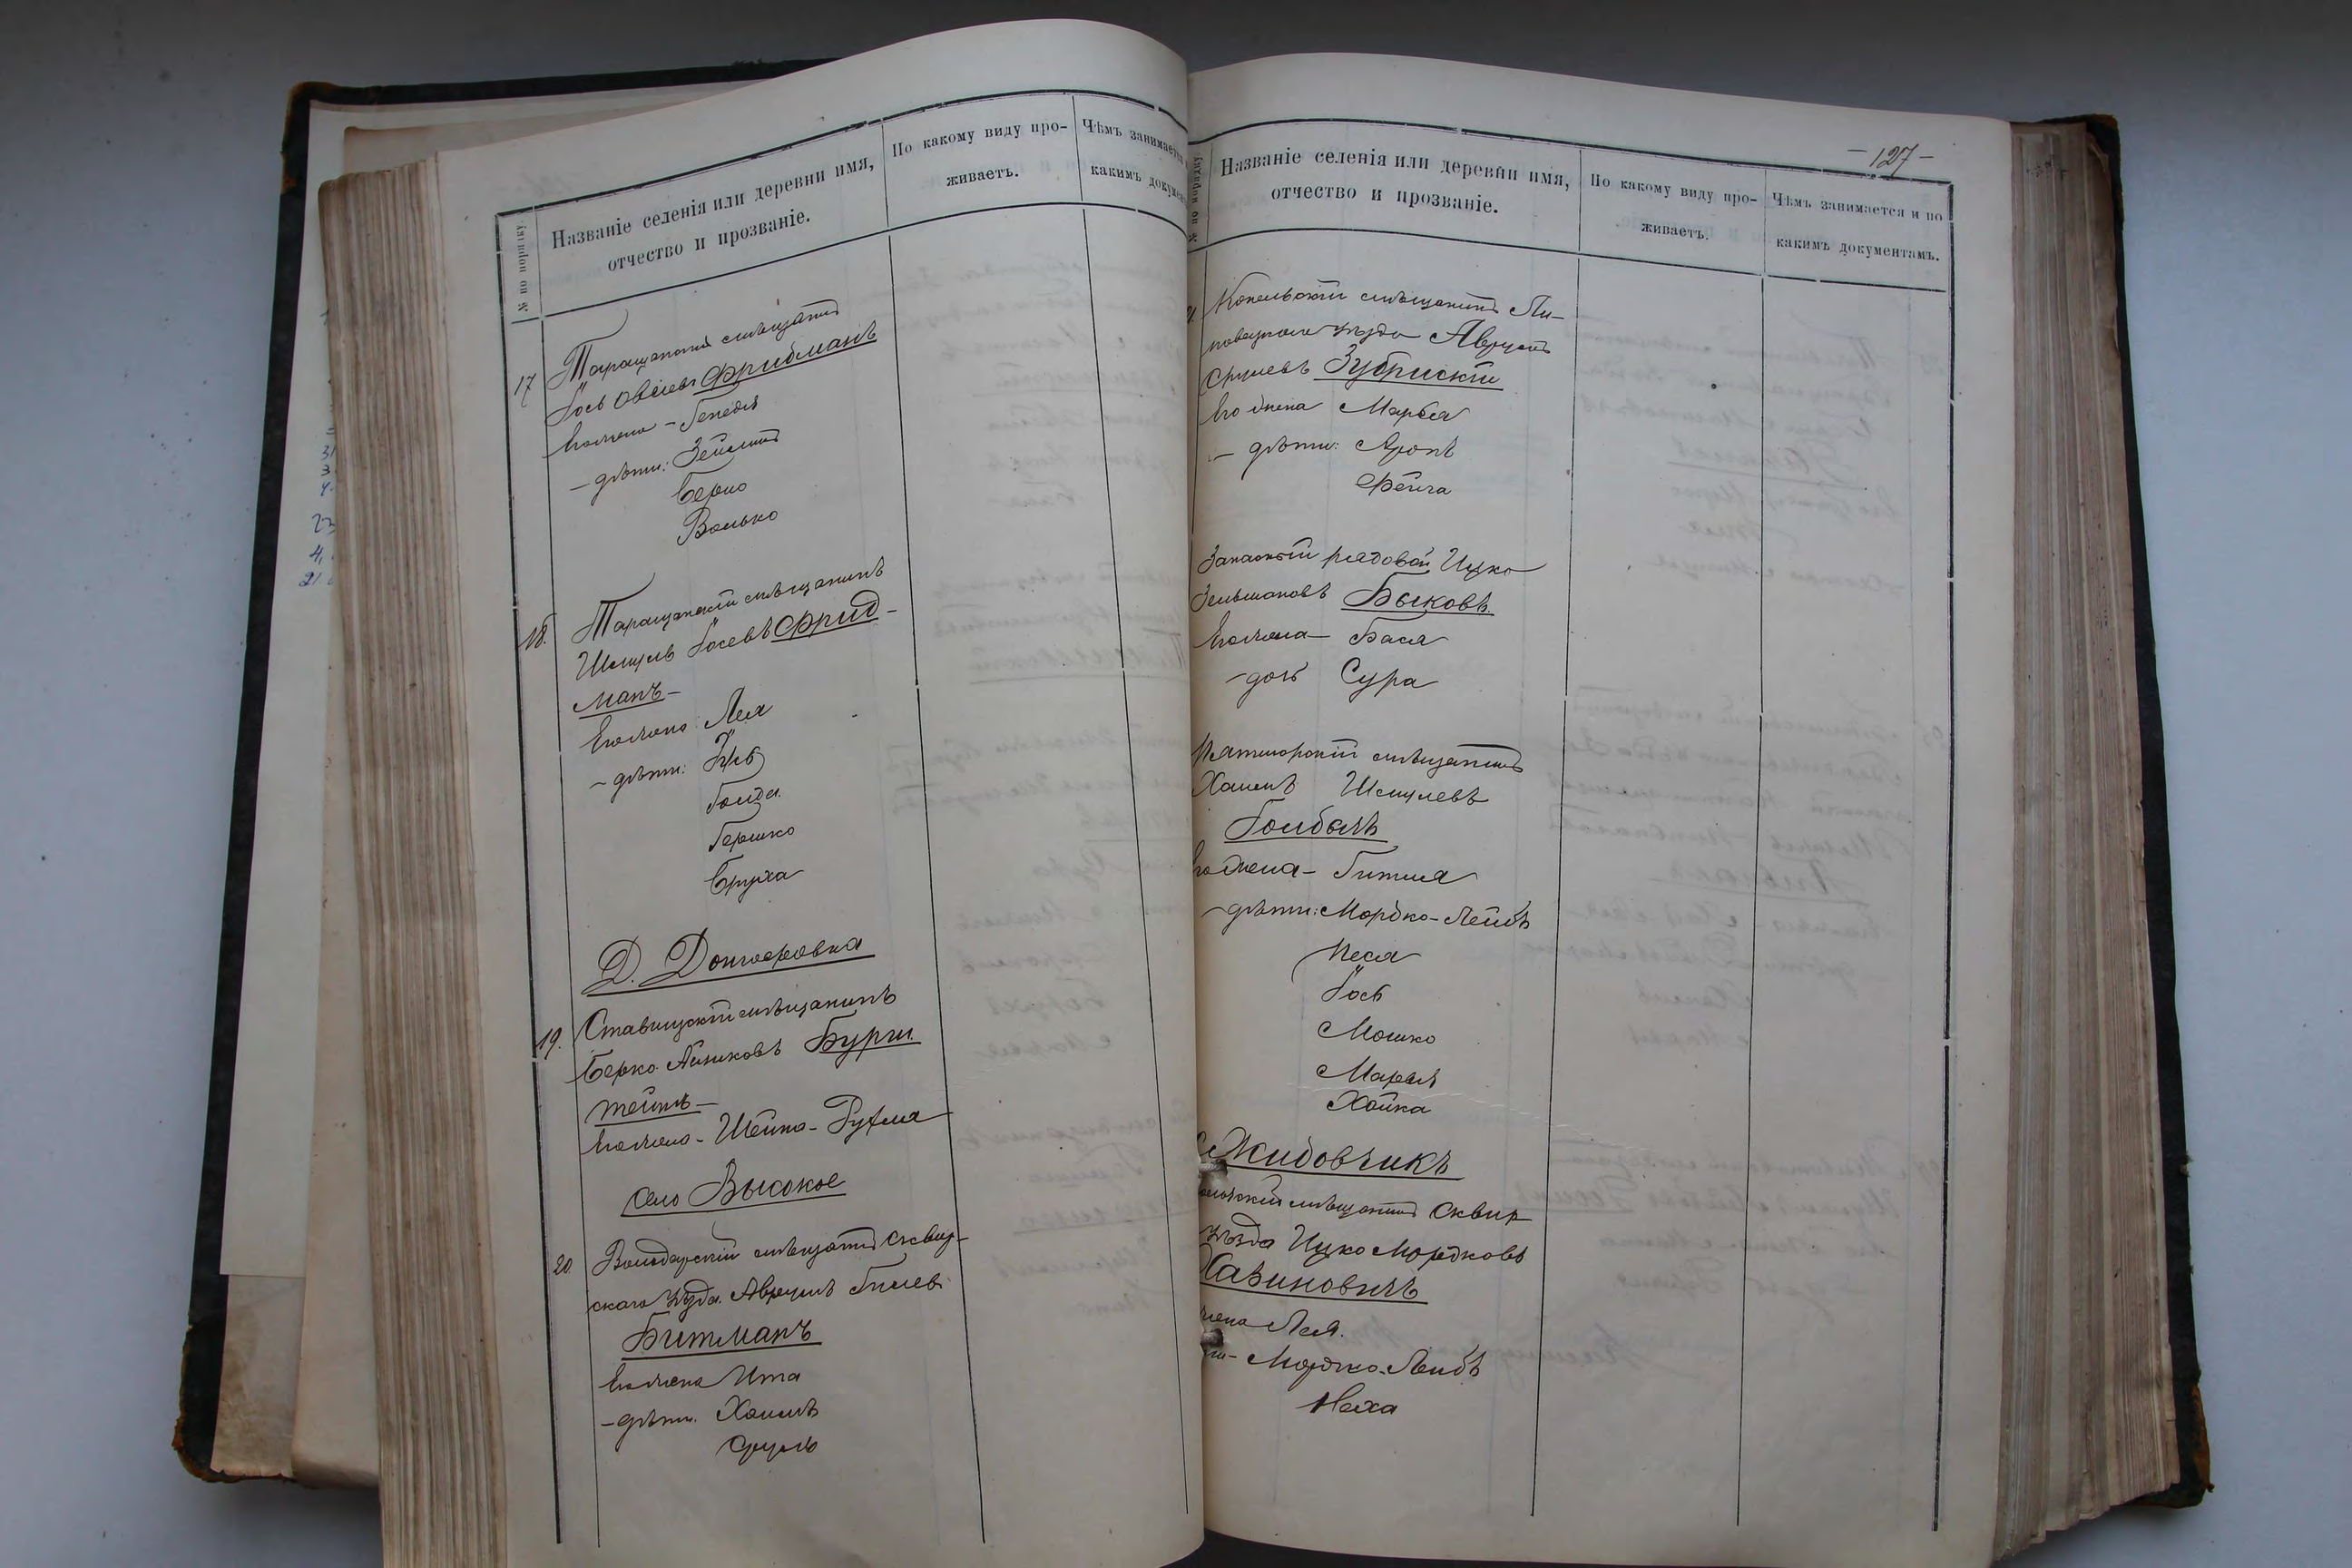 № по порядку
Названіе селенія или деревни имя,
отчество и прозваніе.
По какому виду про-
живаетъ.
Чѣмъ занимается
какимъ докумен
17
Таращанскій мѣщанинъ
Іось Овсіевъ Фридманъ
Его жена - Генедля
- дѣти: Зейликъ
Берко
Волько
18.
Таращанскій мѣщанинъ
Шмуль Іосевъ Фрид-
манъ -
Его жена: Лея
- дѣти:
Голда
Гершко
Бруха
Д. Донгоровка
19.
Ставищскій мѣщанинъ
Берко Айзиковъ Бурш-
тейнъ -
Его жена - Шейна - Рухля
Село Высокое
20.
Володарскій мѣщанинъ Сквир-
скаго уѣзда Аврумъ Гилев
Битманъ
Его жена Ита
- дѣти. Хаимъ
Сруль
- 127 -
№ по порядку
Названіе селенія или деревни имя,
отчество и прозваніе.
По какому виду про-
живаетъ.
Чѣмъ занимается и по
какимъ документамъ.
Конельскій мѣщанинъ Ли-
повецкаго уѣзда Аврумъ
Срулевъ Зубрискій
Его жена Марьея
- дѣти: Аронъ
Фейга
Запасный рядовой Ицко
Зельмановъ Быковъ
Его жена - Бася
- дочь Сура
Пятигорскій мѣщанинъ
Хаимъ Шмулевъ
Голбымъ
Его жена - Гитля
- дѣти: Мордко-Лейбъ
Песя
Іось
Мошко
Марьямъ
Хайка
Жидовчикъ
мѣщанинъ Сквир
уѣзда Ицко Мордковъ
Хазиновичъ
жена Лея.
- Мордко-Лейбъ
Неха